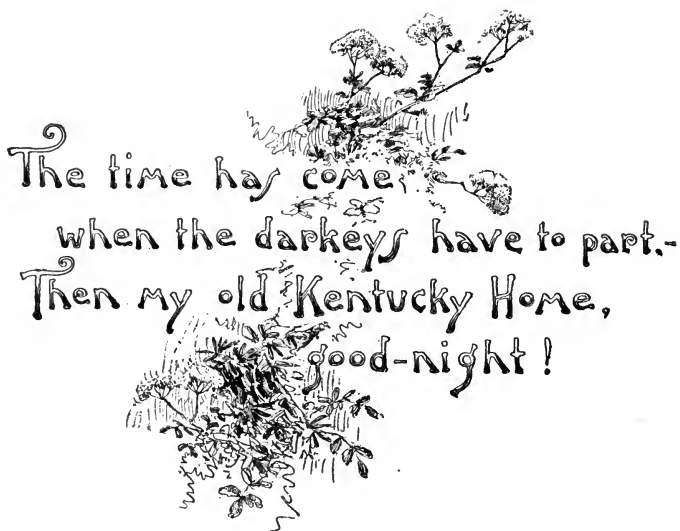 The time has come
when the darkeys have to part,-
Then my old Kentucky Home,
good-night!